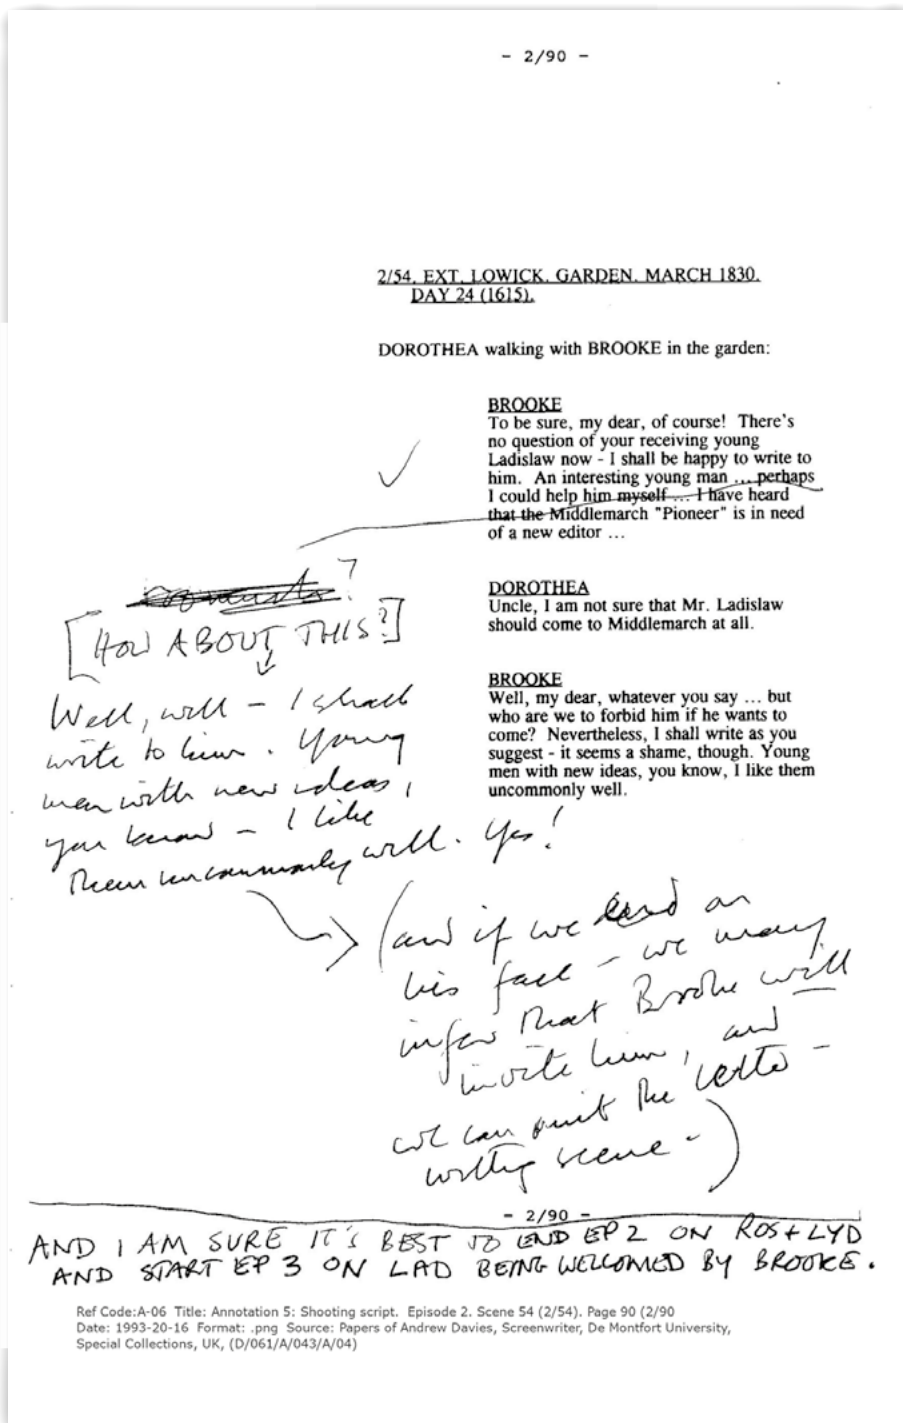 - 2/90 -
2/54. EXT. LOWICK. GARDEN. MARCH 1830.
DAY 24 (1615).
DOROTHEA walking with BROOKE in the garden:
BROOKE
To be sure, my dear, of course! There's
no question of your receiving young
Ladislaw now - I shall be happy to write to
him. An interesting young man ... perhaps
I could help him myself ... I have heard
that the Middlemarch "Pioneer" is in need
of a new editor ...
DOROTHEA
Uncle, I am not sure that Mr. Ladislaw
should come to Middlemarch at all.
BROOKE
Well, my dear, whatever you say ... but
who are we to forbid him if he wants to
come? Nevertheless, I shall write as you
suggest - it seems a shame, though. Young
men with new ideas, you know, I like them
uncommonly well.
?
[HOW ABOUT THIS?]
Well, well - I shall
write to him. Young
men with new ideas,
you know - I like
them uncommonly well. Yes!
(and if we end on
his face - we may
infer that Brooke will
invite him, and
we can omit the letter -
writing scene -)
- 2/90 -
AND I AM SURE IT'S BEST TO END EP 2 ON ROS + LYD
AND START EP 3 ON LAD BEING WELCOMED BY BROOKE.
Ref Code:A-06 Title: Annotation 5: Shooting script. Episode 2. Scene 54 (2/54). Page 90 (2/90
Date: 1993-20-16 Format: .png Source: Papers of Andrew Davies, Screenwriter, De Montfort University,
Special Collections, UK, (D/061/A/043/A/04)